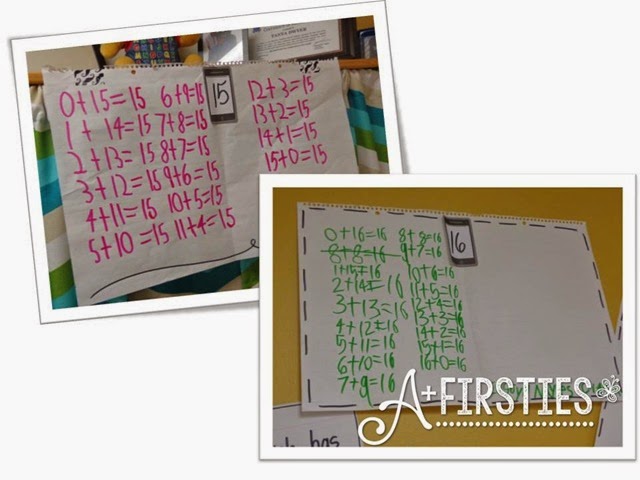 0+15=15
1+14=15
2+13=15
3+12=15
4+11=15
5+10=15
6+9=15
7+8=15
8+7=15
9+6=15
10+5=15
11+4=15
15
12+3=15
13+2=15
14+1=15
15+0=15
0+16=16
8+8=16
1+15=16
2+14=16
3+13=16
4+12=16
5+11=16
6+10=16
7+9=16
8+8=16
9+7=16
10+6=16
11+5=16
12+4=16
13+3=16
14+2=16
15+1=16
16+0=16
16
has
A+FIRSTIES